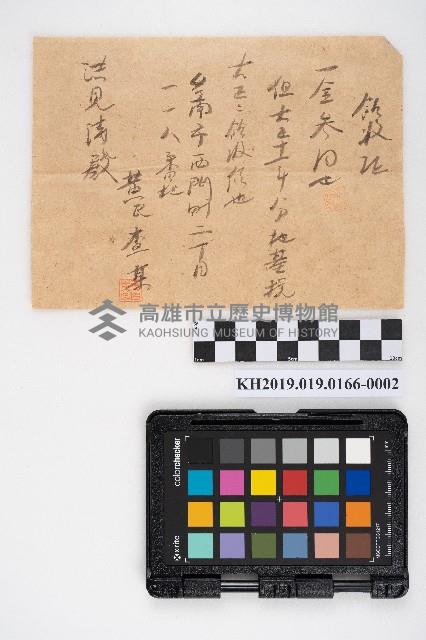 領收証
一金参円也
但大正十一年分地基税
右正ニ領收候也
台南市西門町二丁目
一一八番地
黄氏查某
洪見濤殿
高雄市立歷史博物館
KAOHSIUNG MUSEUM OF HISTORY
KH2019.019.0166-0002
colorchecker
x-rite